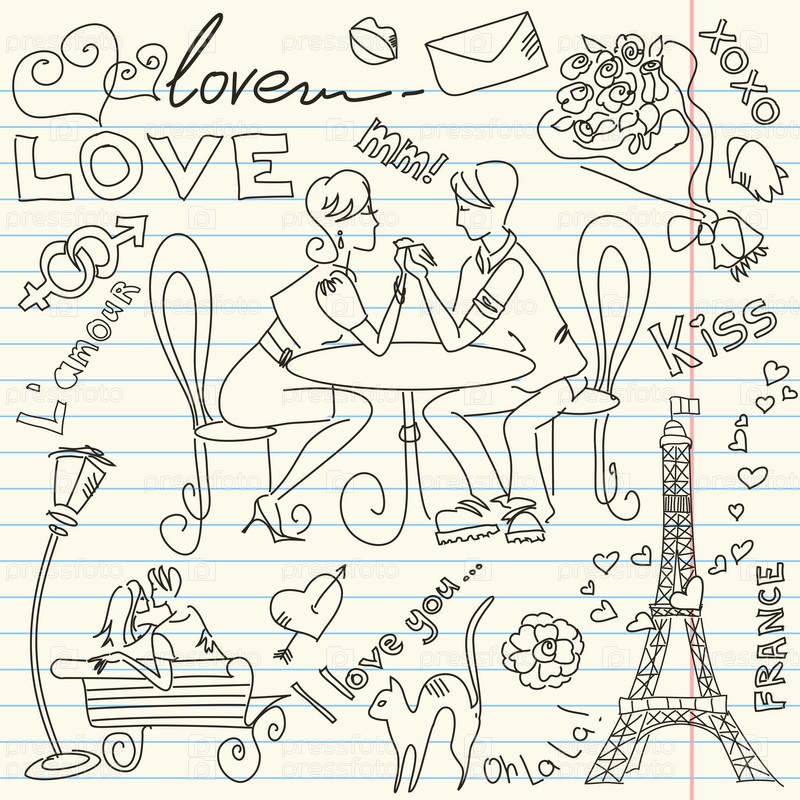 love
XOXO
LOVE
mm!
L'amour
Kiss
FRANCE
I love you...
Oh La La!
pressfoto